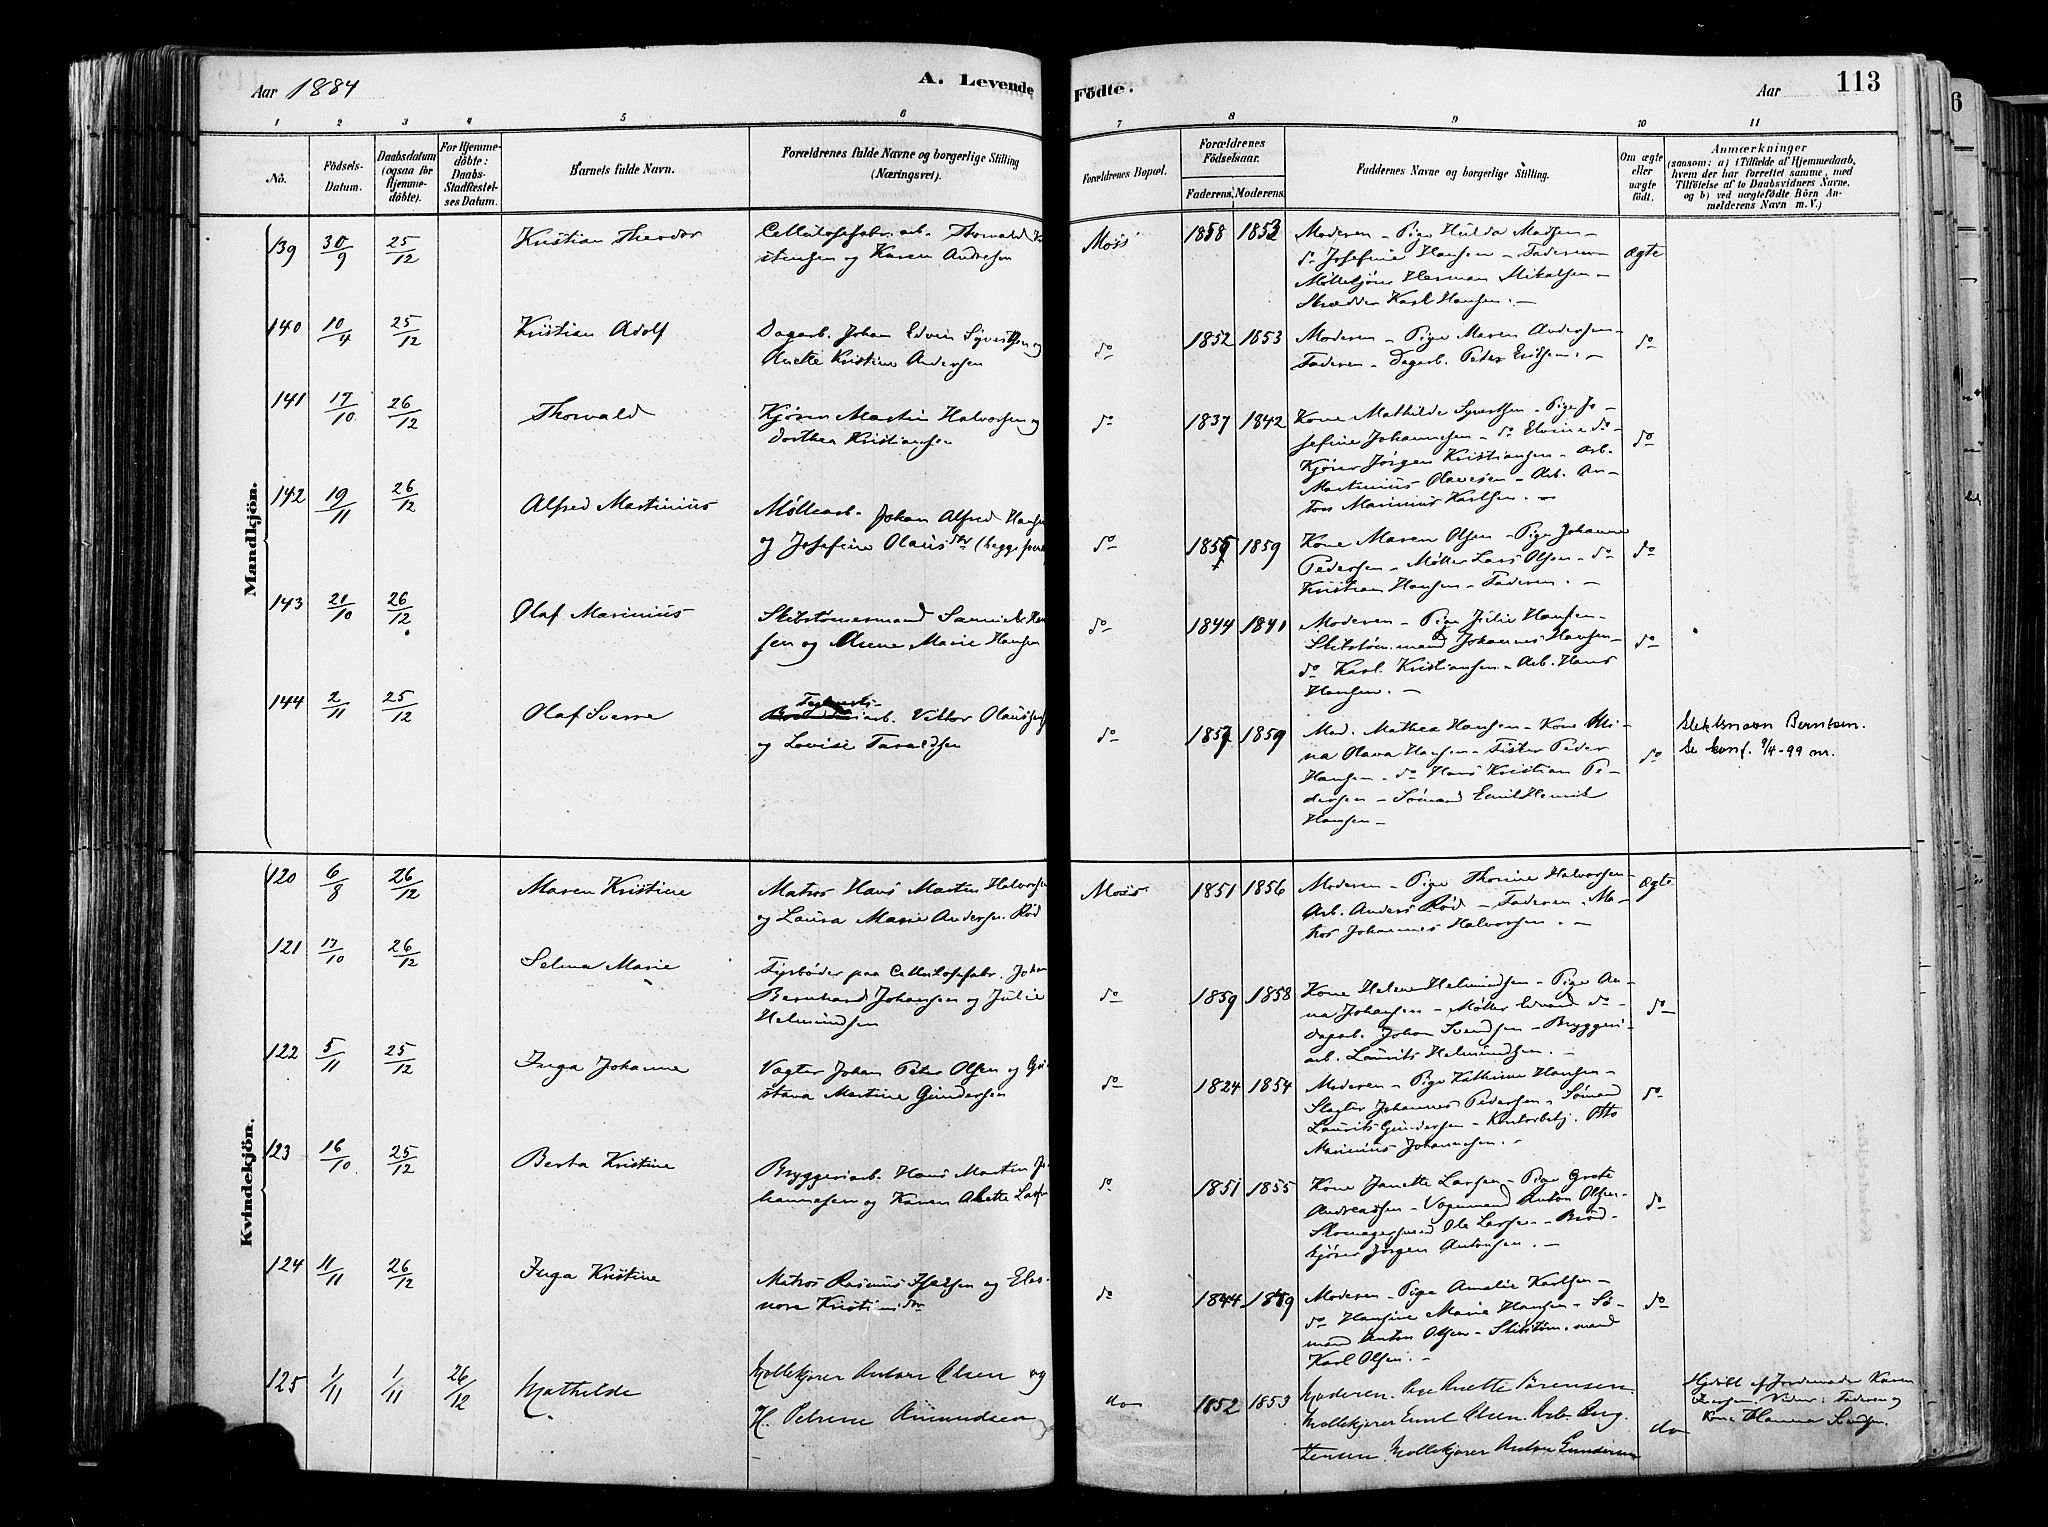 Aar 1884
A. Levende
Födte.
Aar
113
1 2 3 4 5 6 7 8 9 10 11
No.
Födsels-Datum.
Daabsdatum (ogsaa for Hjemme-döbte).
For Hjemme-döbte: Daabs-Stadfæstel-ses Datum.
Barnets fulde Navn.
Forældrenes fulde Navne og borgerlige Stilling
(Næringsvei).
Forældrenes Bopæl.
Forældrenes Födselsaar.
Faderens.
Moderens.
Faddernes Navne og borgerlige Stilling.
Om ægte eller uægte födt.
Anmærkninger
(saasom: a) i Tilfælde af Hjemmedaab,
hvem der har forrettet samme, med
Tilföielse af to Daabsvidners Navne,
og b) ved uægtefödte Börn An-
melderens Navn m. V.)
Mandkjön.
139 30/9 25/12 Kristian Theodor
Cellulosefabr.arb. Thorvald
stensen og Karen Andresen
Moss 1858 1853
Moderen - Pige Hulda Madsen -
do Josefine Hansen - Faderen -
Möllekjörer Herman Mikalsen -
Skrædder Karl Hansen. -
Ægte
140 10/4 25/12 Kristian Adolf
Dagarb. Johan Edvin Syvertsen og
Anette Kristine Andersen
do 1852 1853
Moderen - Pige Maren Andersen -
Faderen - Dagarb. Peder Eriksen. -
do
141 17/10 26/12 Thorvald
Kjörer Martin Halvorsen og
Dorthea Kristiansen
do 1837 1842
Kone Mathilde Syvertsen - Pige Jo-
sefine Johannesen - do Elvine do -
Kjörer Jörgen Kristiansen - Arb.
Martinius Olavesen - Arb. An-
ton Marinius Karlsen. -
do
142 19/11 26/12 Alfred Martinius
Möllearb. Johan Alfred Hansen
og Josefine Olausdtr (begge
do 1855 1859
Kone Maren Olsen - Pige Johanne
Pedersen - Möller Lars Olsen - do
Kristian Hansen - Faderen. -
do
143 21/10 26/12 Olaf Marinius
Skibstömermand Samuel Han-
sen og Anne Marie Hansen
do 1844 1841
Moderen - Pige Julie Hansen -
Skibstöm.mand Johannes Hansen -
do Karl Kristiansen - Arb. Hans
Hansen. -
do
144 2/11 25/12 Olaf Sverre
arb. Viktor Olaussen
og Lovise Taraldsen
do 1857 1859
Mod. Mathea Hansen - Kone Mi-
na Olava Hansen - Fisker Peder
Hansen - do Hans Kristian Pe-
dersen - Sömand Emil Henrik
Hansen -
do
Slektsnavn Berntsen.
Se konf. 9/4-99 nr.
Kvindekjön.
120 6/8 26/12 Maren Kristine
Matros Hans Martin Halvorsen
og Laura Marie Andersen Röd
Moss 1851 1856
Moderen - Pige Thorine Halvorsen -
Arb. Anders Röd - Faderen. Ma-
tros Johannes Halvorsen. -
Ægte
121 17/10 26/12 Selma Marie
Fyrböder paa Cellulosefabr. Johan
Bernhard Johansen og Julie
Helmundsen
do 1859 1858
Kone Helene Helmundsen - Pige An-
na Johansen - Möller Edvard do -
Dagarb. Johan Svendsen - Bryggeri-
arb. Laurits Helmundsen. -
do
122 5/11 25/12 Inga Johanne
Vagter Johan Peter Olsen og Gu-
stava Martine Gundersen
do 1824 1854
Moderen - Pige Kathrine Hansen -
Slagter Johannes Pedersen - Sömand
Laurits Gundersen - Kontorbetj. Otto
Marinius Johannesen. -
do
123 16/10 25/12 Berta Kristine
Bryggeriarb. Hans Martin Jo-
hannesen og Karen Anette Larsen
do 1851 1855
Kone Janette Larsen - Pige Grete
Andreassen - Vognmand Anton Olsen -
Skomagersvend Ole Larsen - Bröd-
kjörer Jörgen Antonsen. -
do
124 11/11 26/12 Inga Kristine
Matros Rasmus Isaksen og Eleo-
nore Kristiansdtr
do 1844 1849
Moderen - Pige Amalie Karlsen -
do Hansine Marie Hansen - Sö-
mand Anton Olsen - Skibstöm.mand
Karl Olsen. -
do
125 1/11 1/11 26/12 Mathilde
Möllekjörer Anton Olsen og
H. Petrine Amundsen
do 1852 1853
Moderen. Pige Anette Sörensen.
Möllekjörer Emil Olsen. Arb.
Jensen. Möllekjörer Anton Gundersen
do
Hjdöbt af Jordemoder Karen
Vidner: Faderen og
Kone Hanna Svendsen.